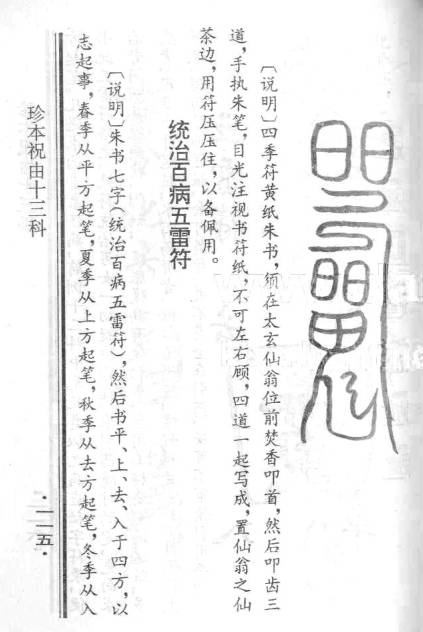 〔说明〕四季符黄纸朱书，须在太玄仙翁位前焚香叩首，然后叩齿三
道，手执朱笔，目光注视书符纸，不可左右顾，四道一起写成，置仙翁之仙
茶边，用符压压住，以备佩用。
统治百病五雷符
〔说明〕朱书七字（统治百病五雷符），然后书平、上、去、入于四方，以
志起事，春季从平方起笔，夏季从上方起笔，秋季从去方起笔，冬季从入
珍本祝由十三科
·一一五·